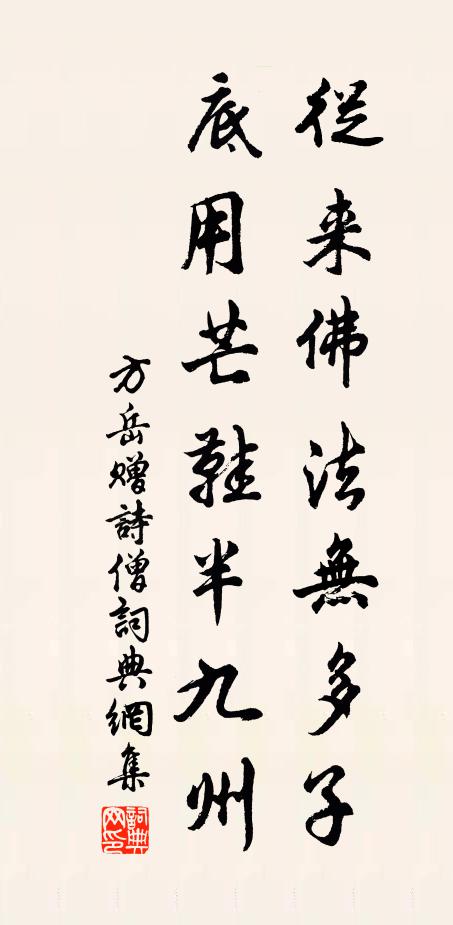 從来佛法無多子
底用芒鞋半九州
方岳贈詩僧詞典網集
詞典网印